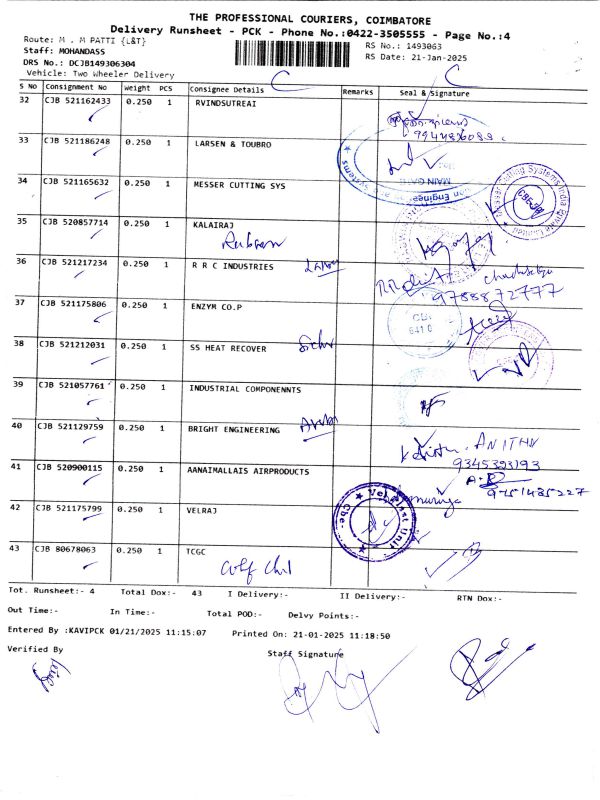 THE PROFESSIONAL COURIERS, COIMBATORE
Delivery Runsheet - PCK - Phone No.:0422-3505555 - Page No.:4
Route: M . M PATTI {L&T}
RS No.: 1493063
Staff: MOHANDASS
RS Date: 21-Jan-2025
DRS No.: DCJB149306304
Vehicle: Two Wheeler Delivery
S No Consignment No Weight PCS Consignee Details Remarks Seal & Signature
32 CJB 521162433 0.250 1 RVINDSUTREAI
33 CJB 521186248 0.250 1 LARSEN & TOUBRO
MAIN GATE
34 CJB 521165632 0.250 1 MESSER CUTTING SYS
35 CJB 520857714 0.250 1 KALAIRAJ
36 CJB 521217234 0.250 1 R R C INDUSTRIES
9788872777
37 CJB 521175806 0.250 1 ENZYM CO.P
38 CJB 521212031 0.250 1 SS HEAT RECOVER
39 CJB 521057761 0.250 1 INDUSTRIAL COMPONENNTS
40 CJB 521129759 0.250 1 BRIGHT ENGINEERING
ANITHA
9345393193
41 CJB 520900115 0.250 1 AANAIMALLAIS AIRPRODUCTS
9751435227
42 CJB 521175799 0.250 1 VELRAJ
43 CJB 80678063 0.250 1 TCGC
Tot. Runsheet:- 4 Total Dox:- 43 I Delivery:- II Delivery:- RTN Dox:-
Out Time:- In Time:- Total POD:- Delvy Points:-
Entered By :KAVIPCK 01/21/2025 11:15:07 Printed On: 21-01-2025 11:18:50
Verified By Staff Signature